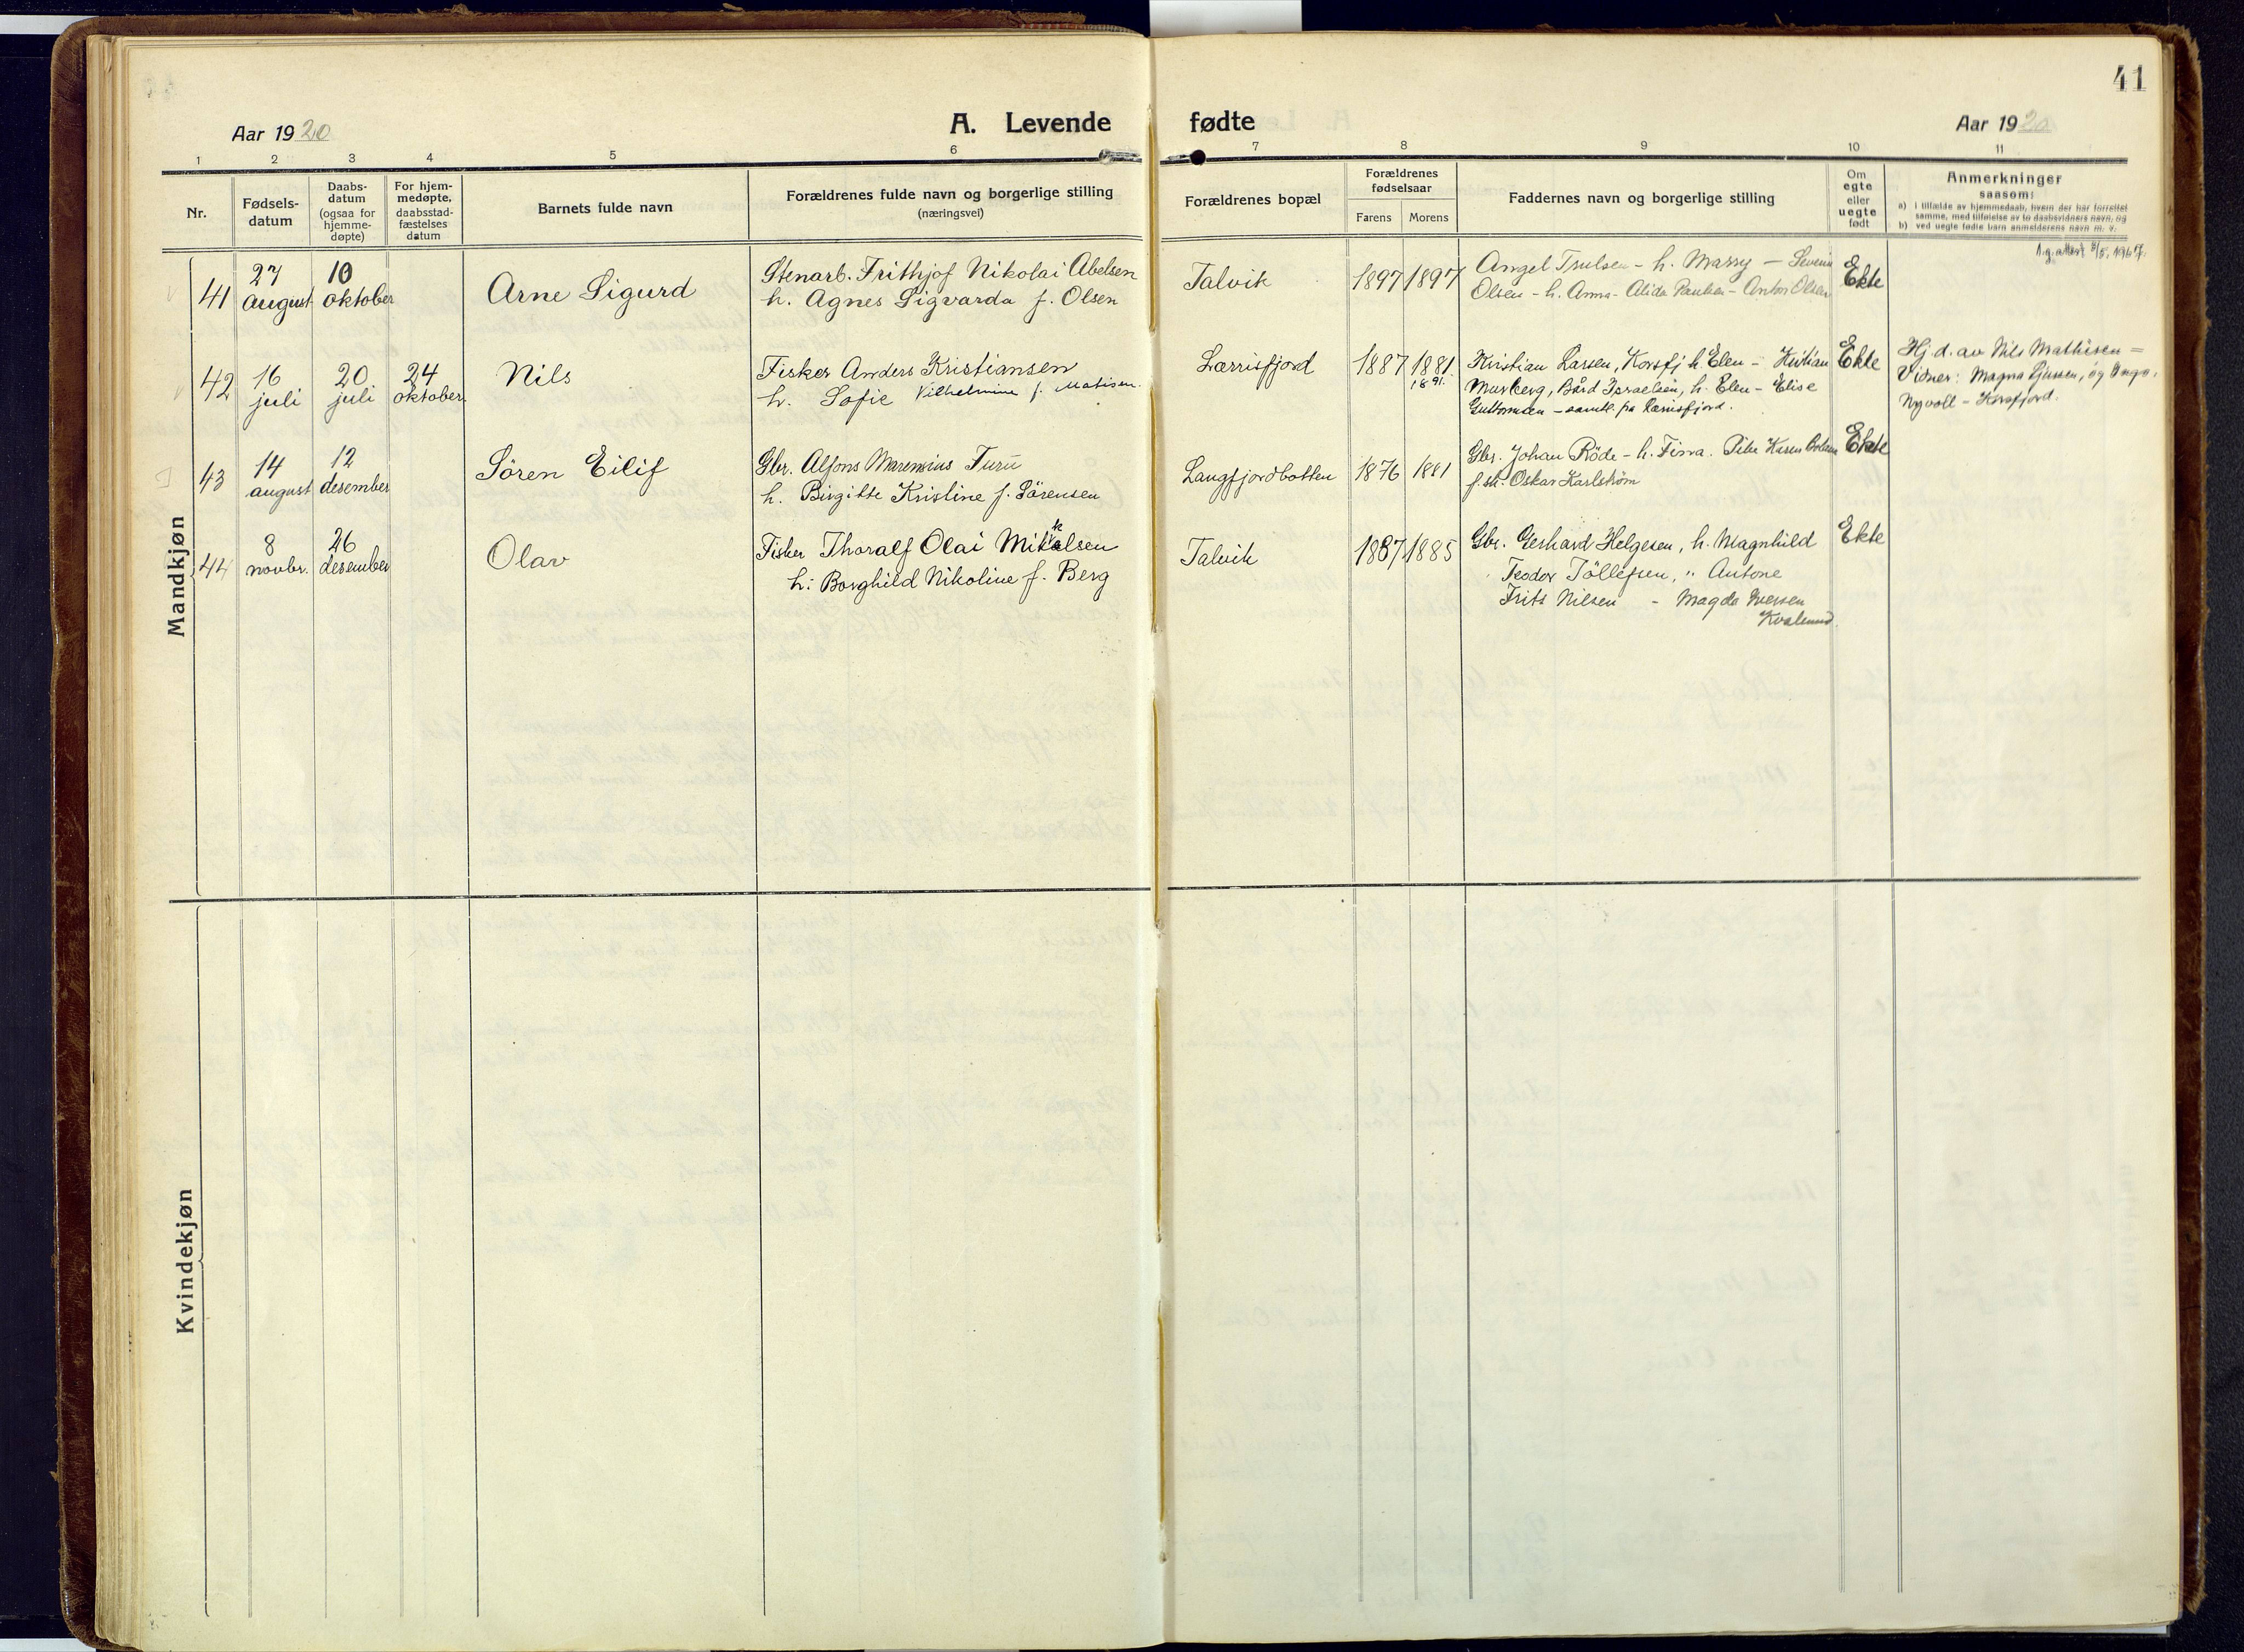 41
Aar 1920
A. Levende fødte
Aar 1920
1 2 3 4 5 6 7 8 9 10 11
Nr.
Fødsels-
datum
Daabs-
datum
(ogsaa for
hjemme-
døpte)
For hjem-
medøpte,
daabsstad-
fæstelses
datum
Barnets fulde navn
Forældrenes fulde navn og borgerlige stilling
(næringsvei)
Forældrenes bopæl
Forældrenes
fødselsaar
Farens Morens
Faddernes navn og borgerlige stilling
Om
egte
eller
uegte
født
Anmerkninger
saasom:
a) i tilfælde av hjemmedaab, hvem der har forrettet
samme, med tilføielse av to daabsvidners navn, og
b) ved uegte fødte barn anmelderens navn m. v.
Mandkjøn
41
27
august
10
oktober
Arne Sigurd
Stenarb. Frithjof Nikolai Abelsen
h. Agnes Sigvarda f. Olsen
Talvik
1897 1897
Angel Trulsen - h. Massy - Severin
Olsen - h. Anna - Alida Paulsen - Anton Olsen
Ekte
42
16
juli
20
juli
24
oktober
Nils
Fisker Anders Kristiansen
h. Sofie Vilhelmine f. Matisen
Lærrisfjord
1887 1881
1891.
Kristian Larsen, Korsfj h. Elen - Kristian
Murberg, Bård Israelsen, h. Elen - Elise
Guttormsen - samtl. fra Lærrisfjord.
Ekte
Hj. d. av Nils Mathisen =
Vidner: Magna og
Nyvoll - Korsfjord.
43
14
august
12
desember
Sören Eilif
Gbr. Alfons Marensius Furu
h. Birgitte Kristine f. Sörensen
Langfjordbotten
1876 1881
Gbr. Johan Röde - h. Finva. Pike Karen
Oskar Karlström
Ekte
44
8
novbr.
26
desember
Olav
Fisker Thoralf Olai Mikkelsen
h: Borghild Nikoline f. Berg
Talvik
1887 1885
Gbr. Gerhard Helgesen, h. Magnhild
Teodor Töllefsen, " Antone
Frits Nilsen - Magda Iversen
Kvalsund.
Ekte
Kvindekjøn